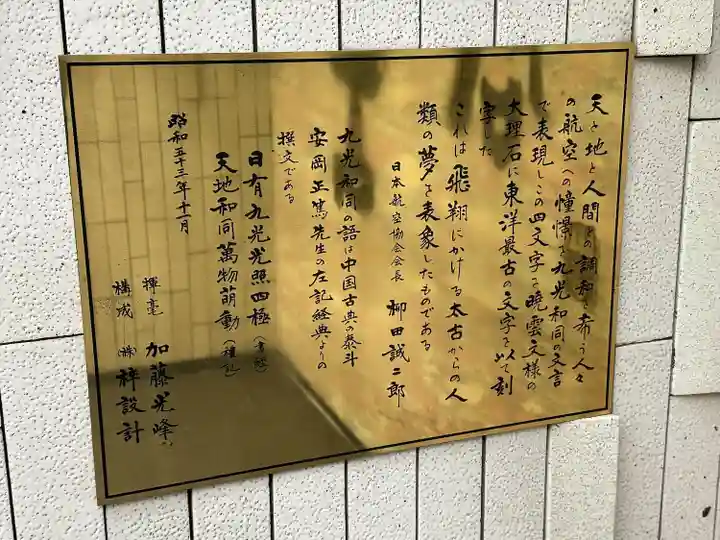 天と地と人間との調和を希う人々
の航空への憧憬を九光和同の文言
で表現しこの四文字を暁雲文様の
大理石に東洋最古の文字を以て刻
字した
これは飛翔にかける太古からの人
類の夢を表象したものである
日本航空協会会長 柳田誠二郎
九光和同の語は中国古典の泰斗
安岡正篤先生の左記経典よりの
撰文である
日有九光光照四極
天地和同萬物萌動(禮記)
昭和五十三年十一月
揮毫 加藤光峰
構成 ㈱梓設計